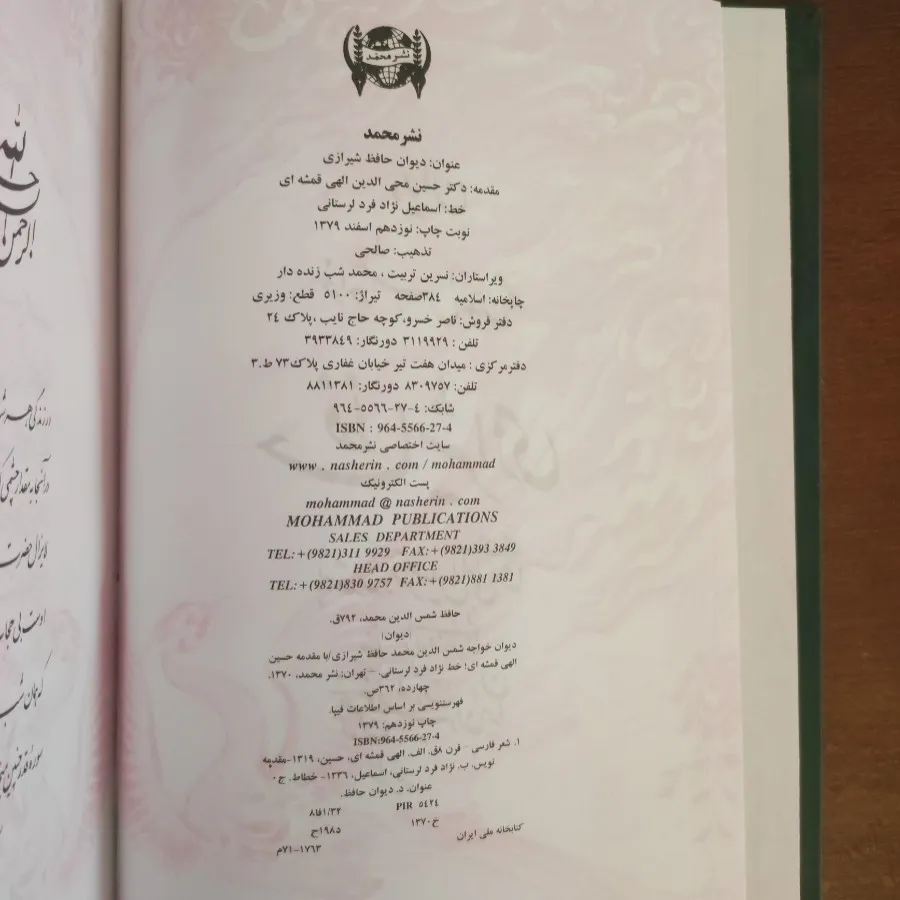 نشر محمد
نشر محمد
عنوان: دیوان حافظ شیرازی
مقدمه: دکتر حسین محی الدین الهی قمشه ای
خط: اسماعیل نژاد فرد لرستانی
نوبت چاپ: نوزدهم اسفند ۱۳۷۹
تذهیب: صالحی
ویراستاران: نسرین تربیت ، محمد شب زنده دار
چاپخانه: اسلامیه ۳۸۴صفحه تیراژ: ۵۱۰۰ قطع: وزیری
دفتر فروش: ناصر خسرو،کوچه حاج نایب ،پلاک ۲۴
تلفن : ۳۱۱۹۹۲۹ دورنگار: ۳۹۳۳۸۴۹
دفترمرکزی : میدان هفت تیر خیابان غفاری پلاک۷۳ ط.۳
تلفن: ۸۳۰۹۷۵۷ دورنگار: ۸۸۱۱۳۸۱
شابک: ۴-۲۷-۵۵۶۶-۹۶۴
ISBN : 964-5566-27-4
سایت اختصاصی نشرمحمد
www . nasherin . com / mohammad
پست الکترونیک
mohammad @ nasherin . com
MOHAMMAD PUBLICATIONS
SALES DEPARTMENT
TEL:+(9821)311 9929 FAX:+(9821)393 3849
HEAD OFFICE
TEL:+(9821)830 9757 FAX:+(9821)881 1381
حافظ شمس الدین محمد، ۷۹۲ق.
(دیوان)
دیوان خواجه شمس الدین محمد حافظ شیرازی/با مقدمه حسین
الهی قمشه ای؛ خط نژاد فرد لرستانی. - تهران: نشر محمد، ۱۳۷۰.
چهارده، ۳۶۲ص.
فهرستنویسی بر اساس اطلاعات فیپا.
چاپ نوزدهم: ۱۳۷۹
ISBN:964-5566-27-4
۱. شعر فارسی - قرن ۸ق. الف. الهی قمشه ای، حسین، ۱۳۱۹-مقدمه
نویس. ب. نژاد فرد لرستانی، اسماعیل، ۱۳۳۶- خطاط. ج.
عنوان. د. دیوان حافظ.
PIR ۵۴۲۴ ۸فا۱/۳۲
خ۱۳۷۰ د۱۹۸ح
کتابخانه ملی ایران ۱۷۶۳-۷۱م